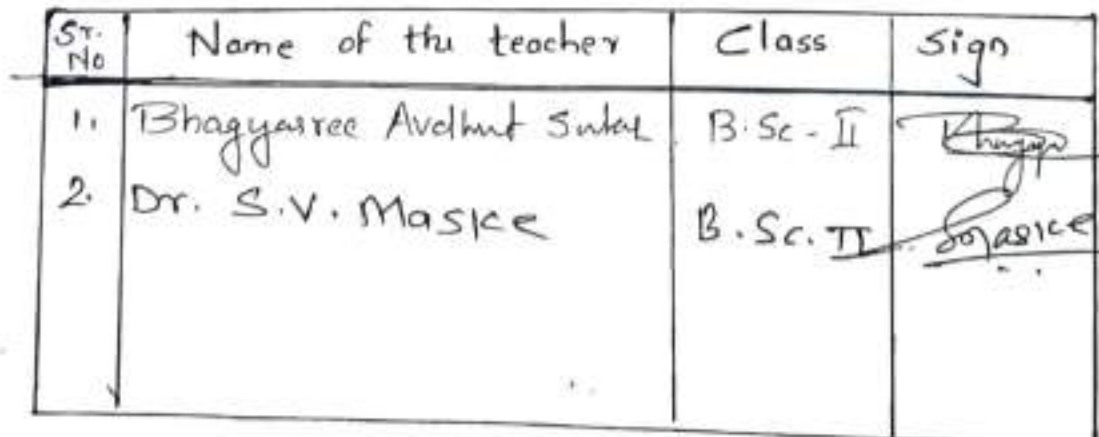 Sr. No Name of the teacher Class Sign
1. Bhagyasree Avdhut B.Sc - II
2. Dr. S.V. Maske B.Sc. II Smaske